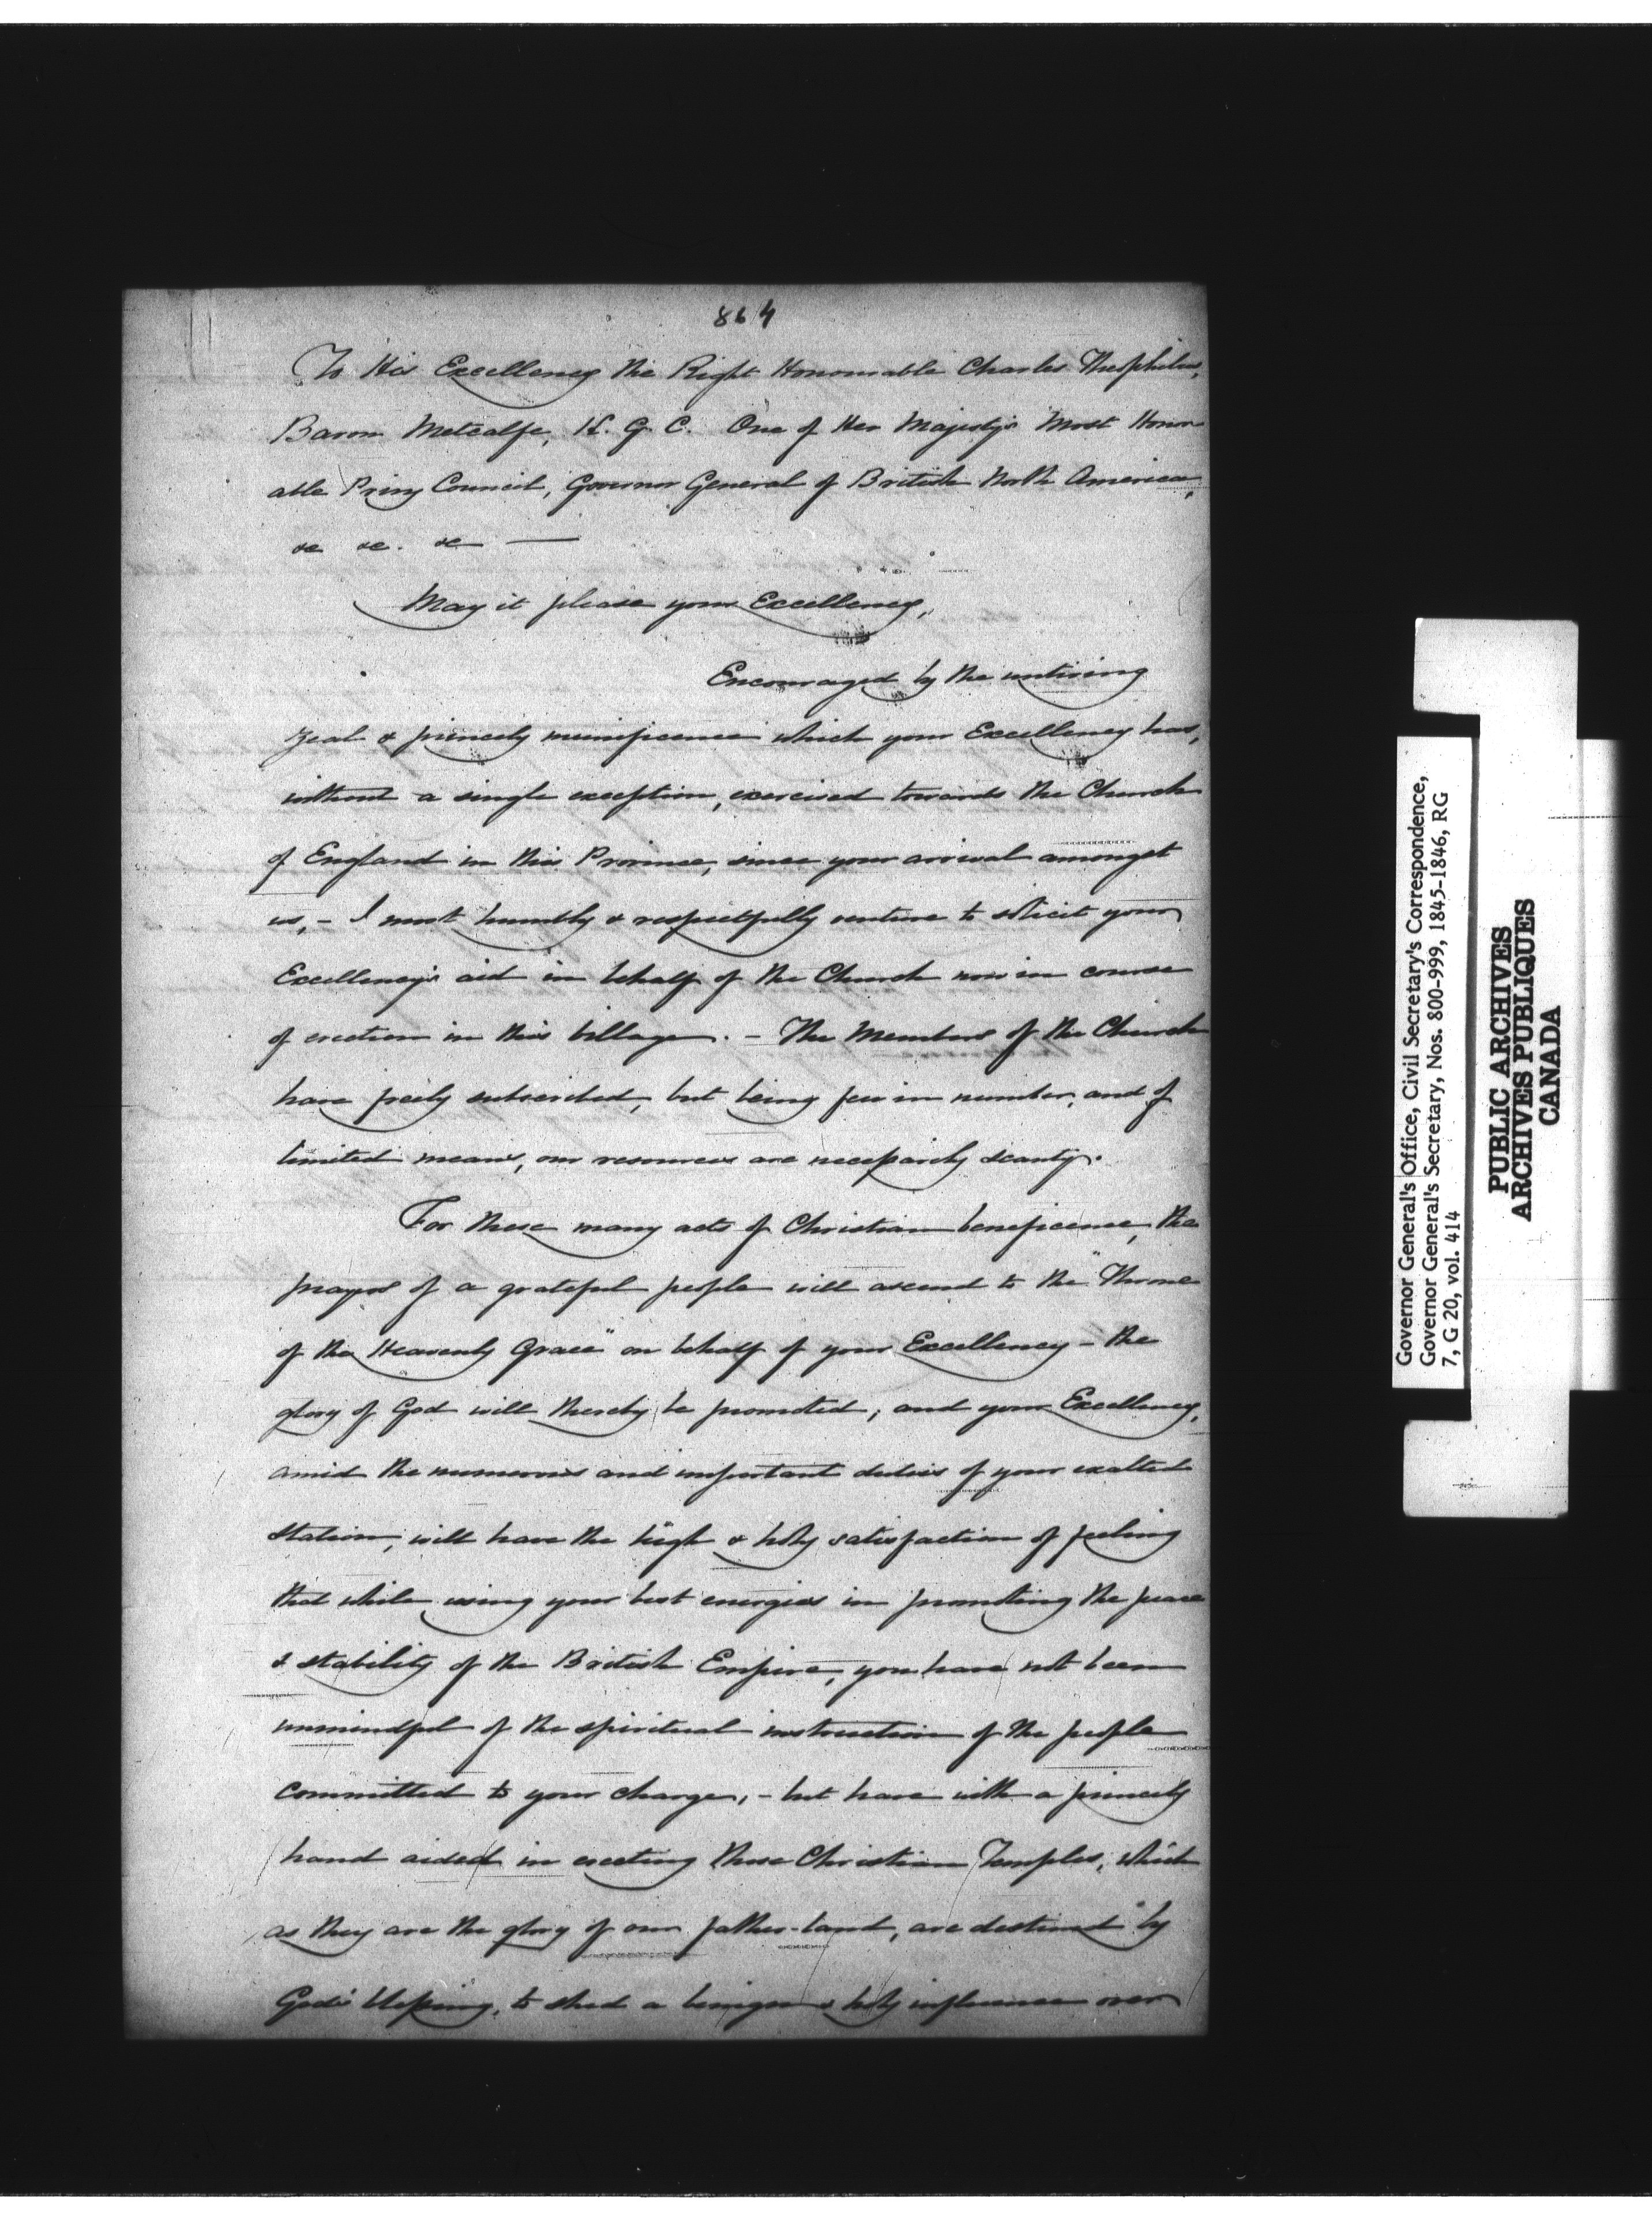 864
To His Excellency the Right Honourable Charles Theophilus,
Baron Metcalfe, K. G. C. One of Her Majesty's Most Honor
able Privy Council, Governor General of British North America,
&c &c. &c —
May it please your Excellency,
Encouraged by the untiring
zeal & princely munificence which your Excellency has,
without a single exception, exercised towards the Church
of England in this Province, since your arrival amongst
us, - I most humbly & respectfully venture to solicit your
Excellency's aid in behalf of the Church now in course
of erection in this village. - The Members of the Church
have freely subscribed, but being few in number, and of
limited means, our resources are necessarily scanty.
For these many acts of Christian beneficence, the
prayers of a grateful people will ascend to the "Throne
of the Heavenly Grace" on behalf of your Excellency - the
glory of God will thereby be promoted; and your Excellency,
amid the numerous and important duties of your exalted
station, will have the high & holy satisfaction of feeling
that while using your best energies in promoting the peace
& stability of the British Empire, you have not been
unmindful of the spiritual instruction of the people
committed to your charge, - but have with a princely
hand aided in erecting those Christian Temples, which
as they are the glory of our father-land, are destined by
God's blessing, to shed a benign & holy influence over
Governor General's Office, Civil Secretary's Correspondence,
Governor General's Secretary, Nos. 800-999, 1845-1846, RG
7, G 20, vol. 414
PUBLIC ARCHIVES
ARCHIVES PUBLIQUES
CANADA